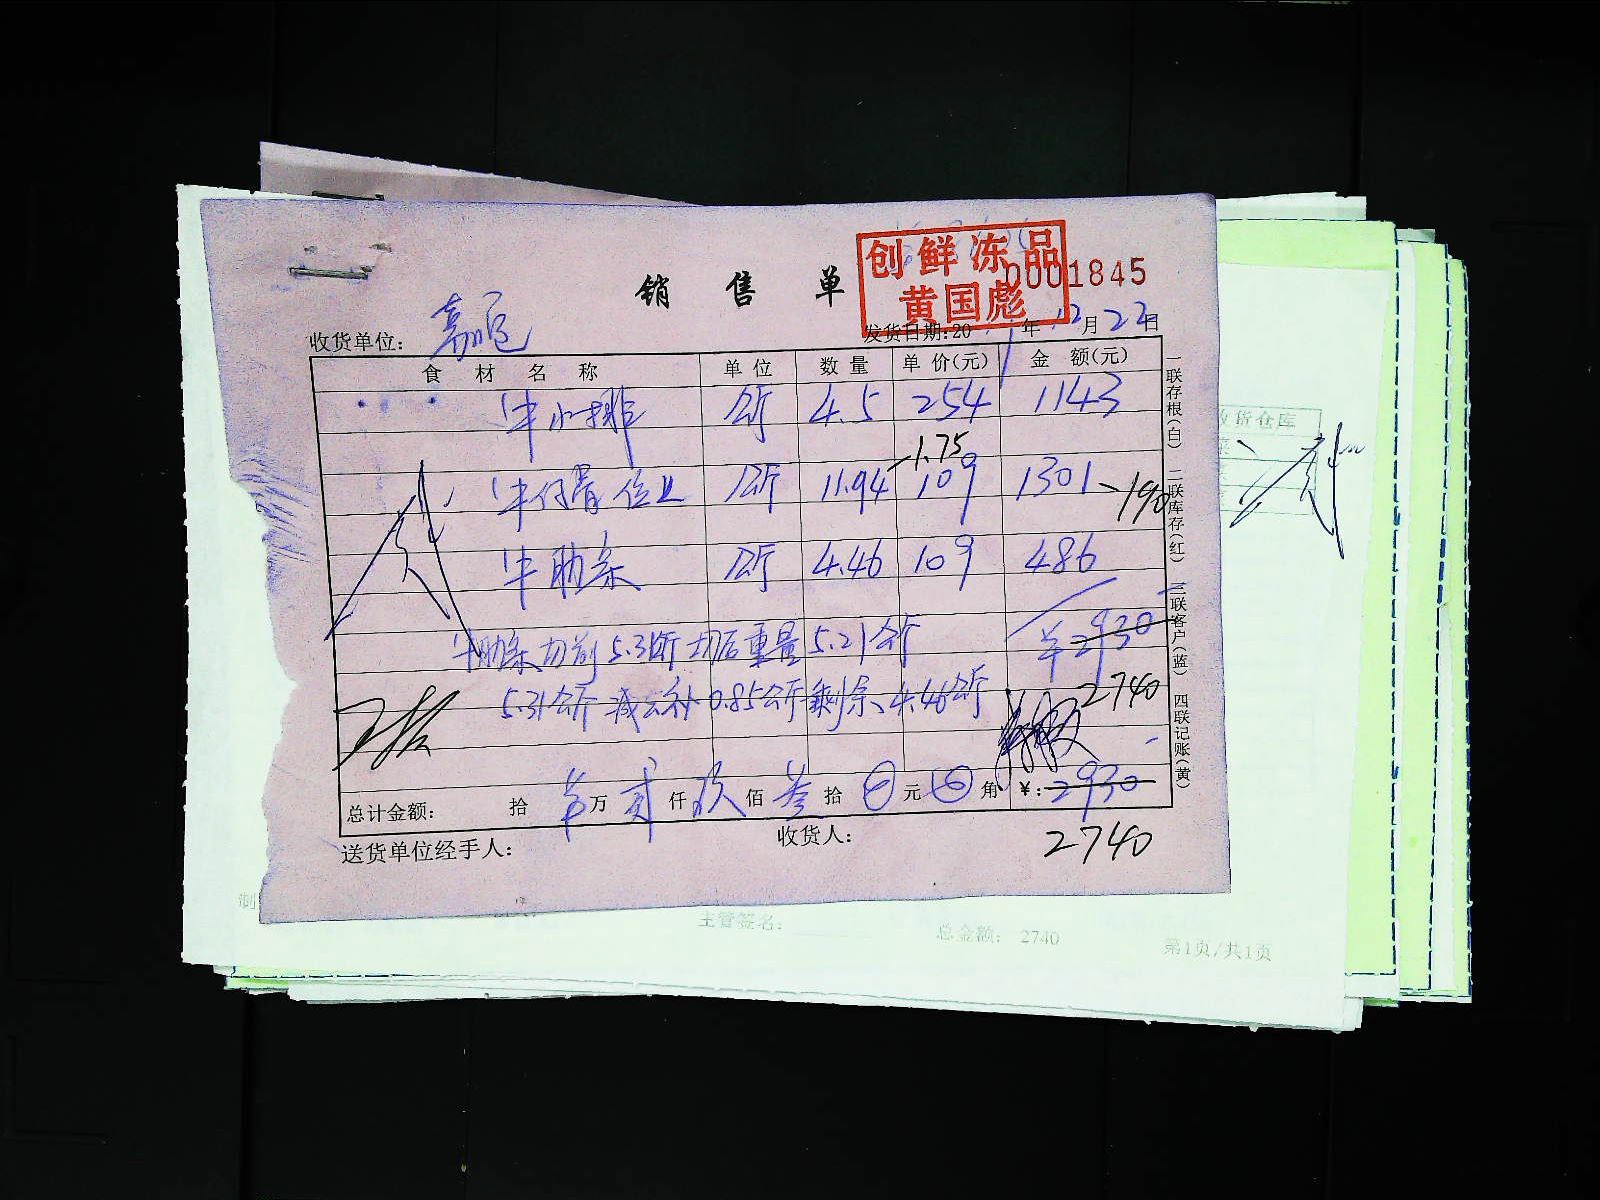 创鲜冻品
黄国彪
销售单
0001845
收货单位：
发货日期：20 年12月22日
食材名称 单位 数量 单价(元) 金额(元)
牛小排 公斤 4.5 254 1143
-1.75
牛仔骨 公斤 11.94 109 1301 -190
牛肋条 公斤 4.46 109 486
牛肋条切前5.31公斤切后重量5.21公斤 2930
5.31公斤减去补0.85公斤剩余4.46公斤 2740
总计金额： 拾 万贰仟玖佰叁拾 元 角 ¥：2930
送货单位经手人： 收货人： 2740
一联存根(白) 二联库存(红) 三联客户(蓝) 四联记账(黄)
收货仓库
主管签名： 总金额：2740 第1页/共1页